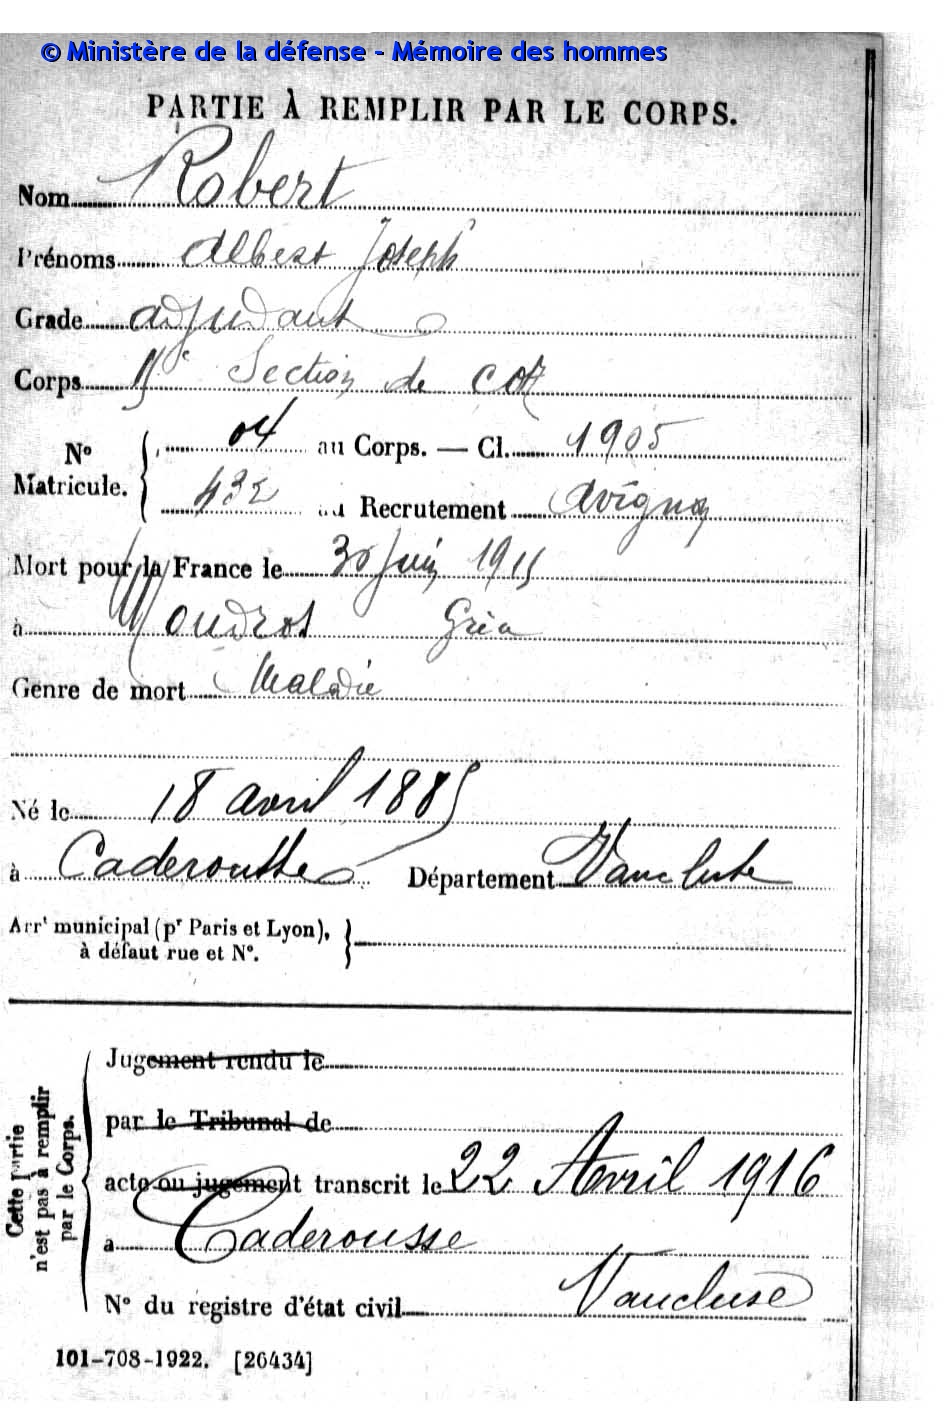 © Ministère de la défense - Mémoire des hommes
PARTIE À REMPLIR PAR LE CORPS.
Nom Robert
Prénoms Albert Joseph
Grade adjudant
Corps Section de
Nº Matricule. 04 au Corps. — Cl. 1905
432 au Recrutement Avignon
Mort pour la France le 30 Juin 1915
à Moudros Grèce
Genre de mort Maladie
Né le 18 avril 1885
à Caderousse Département Vaucluse
Arrt municipal (pr Paris et Lyon),
à défaut rue et Nº.
Cette partie
n'est pas à remplir
par le Corps.
Jugement rendu le
par le Tribunal de
acte ou jugement transcrit le 22 Avril 1916
a Caderousse
Nº du registre d'état civil Vaucluse
101-708-1922. [26434]